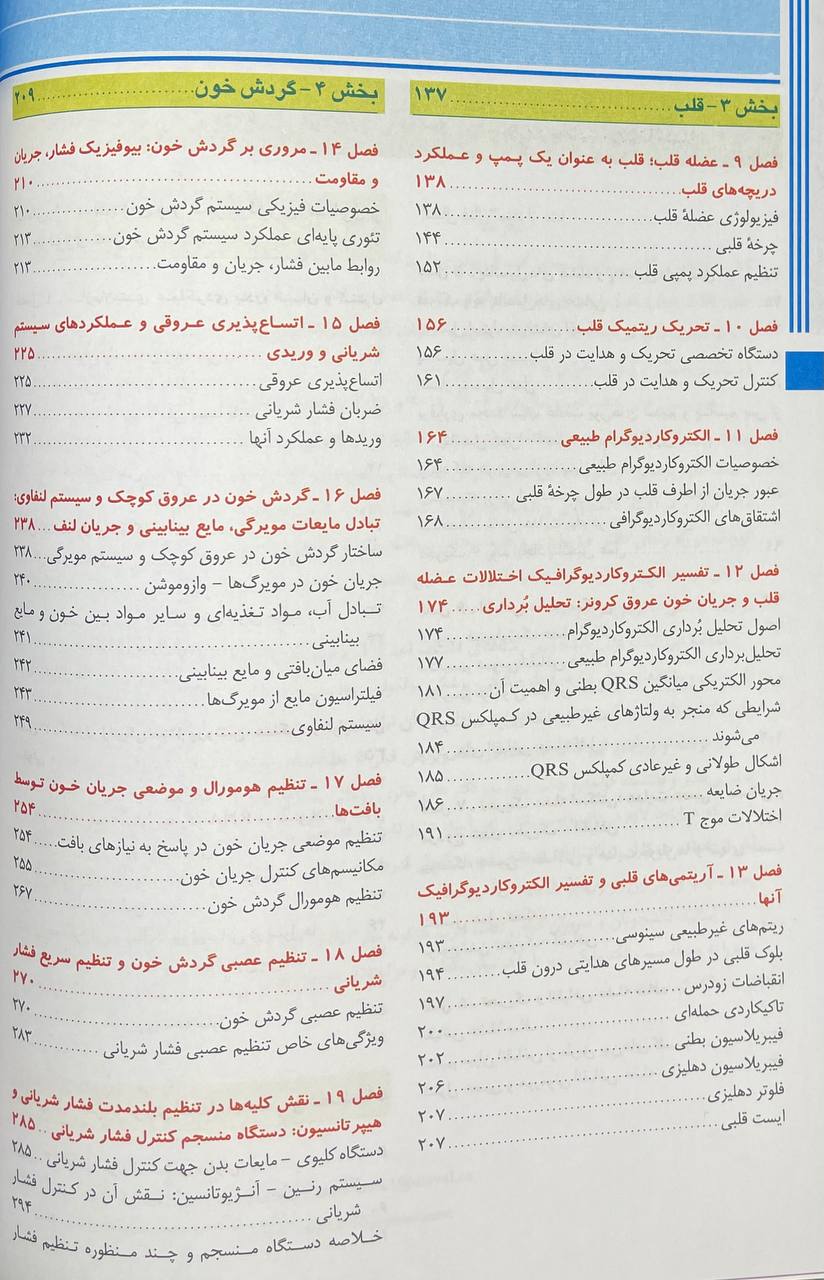 بخش ۳-قلب ........ ۱۳۷
فصل ۹ ـ عضله قلب؛ قلب به عنوان یک پمپ و عملکرد
دریچه‌های قلب ........ ۱۳۸
فیزیولوژی عضلهٔ قلب ........ ۱۳۸
چرخهٔ قلبی ........ ۱۴۴
تنظیم عملکرد پمپی قلب ........ ۱۵۲
فصل ۱۰ ـ تحریک ریتمیک قلب ........ ۱۵۶
دستگاه تخصصی تحریک و هدایت در قلب ........ ۱۵۶
کنترل تحریک و هدایت در قلب ........ ۱۶۱
فصل ۱۱ ـ الکتروکاردیوگرام طبیعی ........ ۱۶۴
خصوصیات الکتروکاردیوگرام طبیعی ........ ۱۶۴
عبور جریان از اطرف قلب در طول چرخهٔ قلبی ........ ۱۶۷
اشتقاق‌های الکتروکاردیوگرافی ........ ۱۶۸
فصل ۱۲ ـ تفسیر الکتروکاردیوگرافیک اختلالات عضله
قلب و جریان خون عروق کرونر: تحلیل بُرداری ..... ۱۷۴
اصول تحلیل بُرداری الکتروکاردیوگرام ........ ۱۷۴
تحلیل‌برداری الکتروکاردیوگرام طبیعی ........ ۱۷۷
محور الکتریکی میانگین QRS بطنی و اهمیت آن ........ ۱۸۱
شرایطی که منجر به ولتاژهای غیرطبیعی در کمپلکس QRS
می‌شوند ........ ۱۸۴
اشکال طولانی و غیرعادی کمپلکس QRS ........ ۱۸۵
جریان ضایعه ........ ۱۸۶
اختلالات موج T ........ ۱۹۱
فصل ۱۳ ـ آریتمی‌های قلبی و تفسیر الکتروکاردیوگرافیک
آنها ........ ۱۹۳
ریتم‌های غیرطبیعی سینوسی ........ ۱۹۳
بلوک قلبی در طول مسیرهای هدایتی درون قلب ........ ۱۹۴
انقباضات زودرس ........ ۱۹۷
تاکیکاردی حمله‌ای ........ ۲۰۰
فیبریلاسیون بطنی ........ ۲۰۲
فیبریلاسیون دهلیزی ........ ۲۰۶
فلوتر دهلیزی ........ ۲۰۷
ایست قلبی ........ ۲۰۷
بخش ۴-گردش خون ........ ۲۰۹
فصل ۱۴ ـ مروری بر گردش خون: بیوفیزیک فشار، جریان
و مقاومت ........ ۲۱۰
خصوصیات فیزیکی سیستم گردش خون ........ ۲۱۰
تئوری پایه‌ای عملکرد سیستم گردش خون ........ ۲۱۳
روابط مابین فشار، جریان و مقاومت ........ ۲۱۳
فصل ۱۵ ـ اتساع‌پذیری عروقی و عملکردهای سیستم
شریانی و وریدی ........ ۲۲۵
اتساع‌پذیری عروقی ........ ۲۲۵
ضربان فشار شریانی ........ ۲۲۷
وریدها و عملکرد آنها ........ ۲۳۲
فصل ۱۶ ـ گردش خون در عروق کوچک و سیستم لنفاوی:
تبادل مایعات مویرگی، مایع بینابینی و جریان لنف ... ۲۳۸
ساختار گردش خون در عروق کوچک و سیستم مویرگی ... ۲۳۸
جریان خون در مویرگ‌ها – وازوموشن ........ ۲۴۰
تبادل آب، مواد تغذیه‌ای و سایر مواد بین خون و مایع
بینابینی ........ ۲۴۱
فضای میان‌بافتی و مایع بینابینی ........ ۲۴۲
فیلتراسیون مایع از مویرگ‌ها ........ ۲۴۳
سیستم لنفاوی ........ ۲۴۹
فصل ۱۷ ـ تنظیم هومورال و موضعی جریان خون توسط
بافت‌ها ........ ۲۵۴
تنظیم موضعی جریان خون در پاسخ به نیازهای بافت ..... ۲۵۴
مکانیسم‌های کنترل جریان خون ........ ۲۵۵
تنظیم هومورال گردش خون ........ ۲۶۷
فصل ۱۸ ـ تنظیم عصبی گردش خون و تنظیم سریع فشار
شریانی ........ ۲۷۰
تنظیم عصبی گردش خون ........ ۲۷۰
ویژگی‌های خاص تنظیم عصبی فشار شریانی ........ ۲۸۳
فصل ۱۹ ـ نقش کلیه‌ها در تنظیم بلندمدت فشار شریانی و
هیپرتانسیون: دستگاه منسجم کنترل فشار شریانی .. ۲۸۵
دستگاه کلیوی – مایعات بدن جهت کنترل فشار شریانی .. ۲۸۵
سیستم رنین – آنژیوتانسین: نقش آن در کنترل فشار
شریانی ........ ۲۹۴
خلاصه دستگاه منسجم و چند منظوره تنظیم فشار